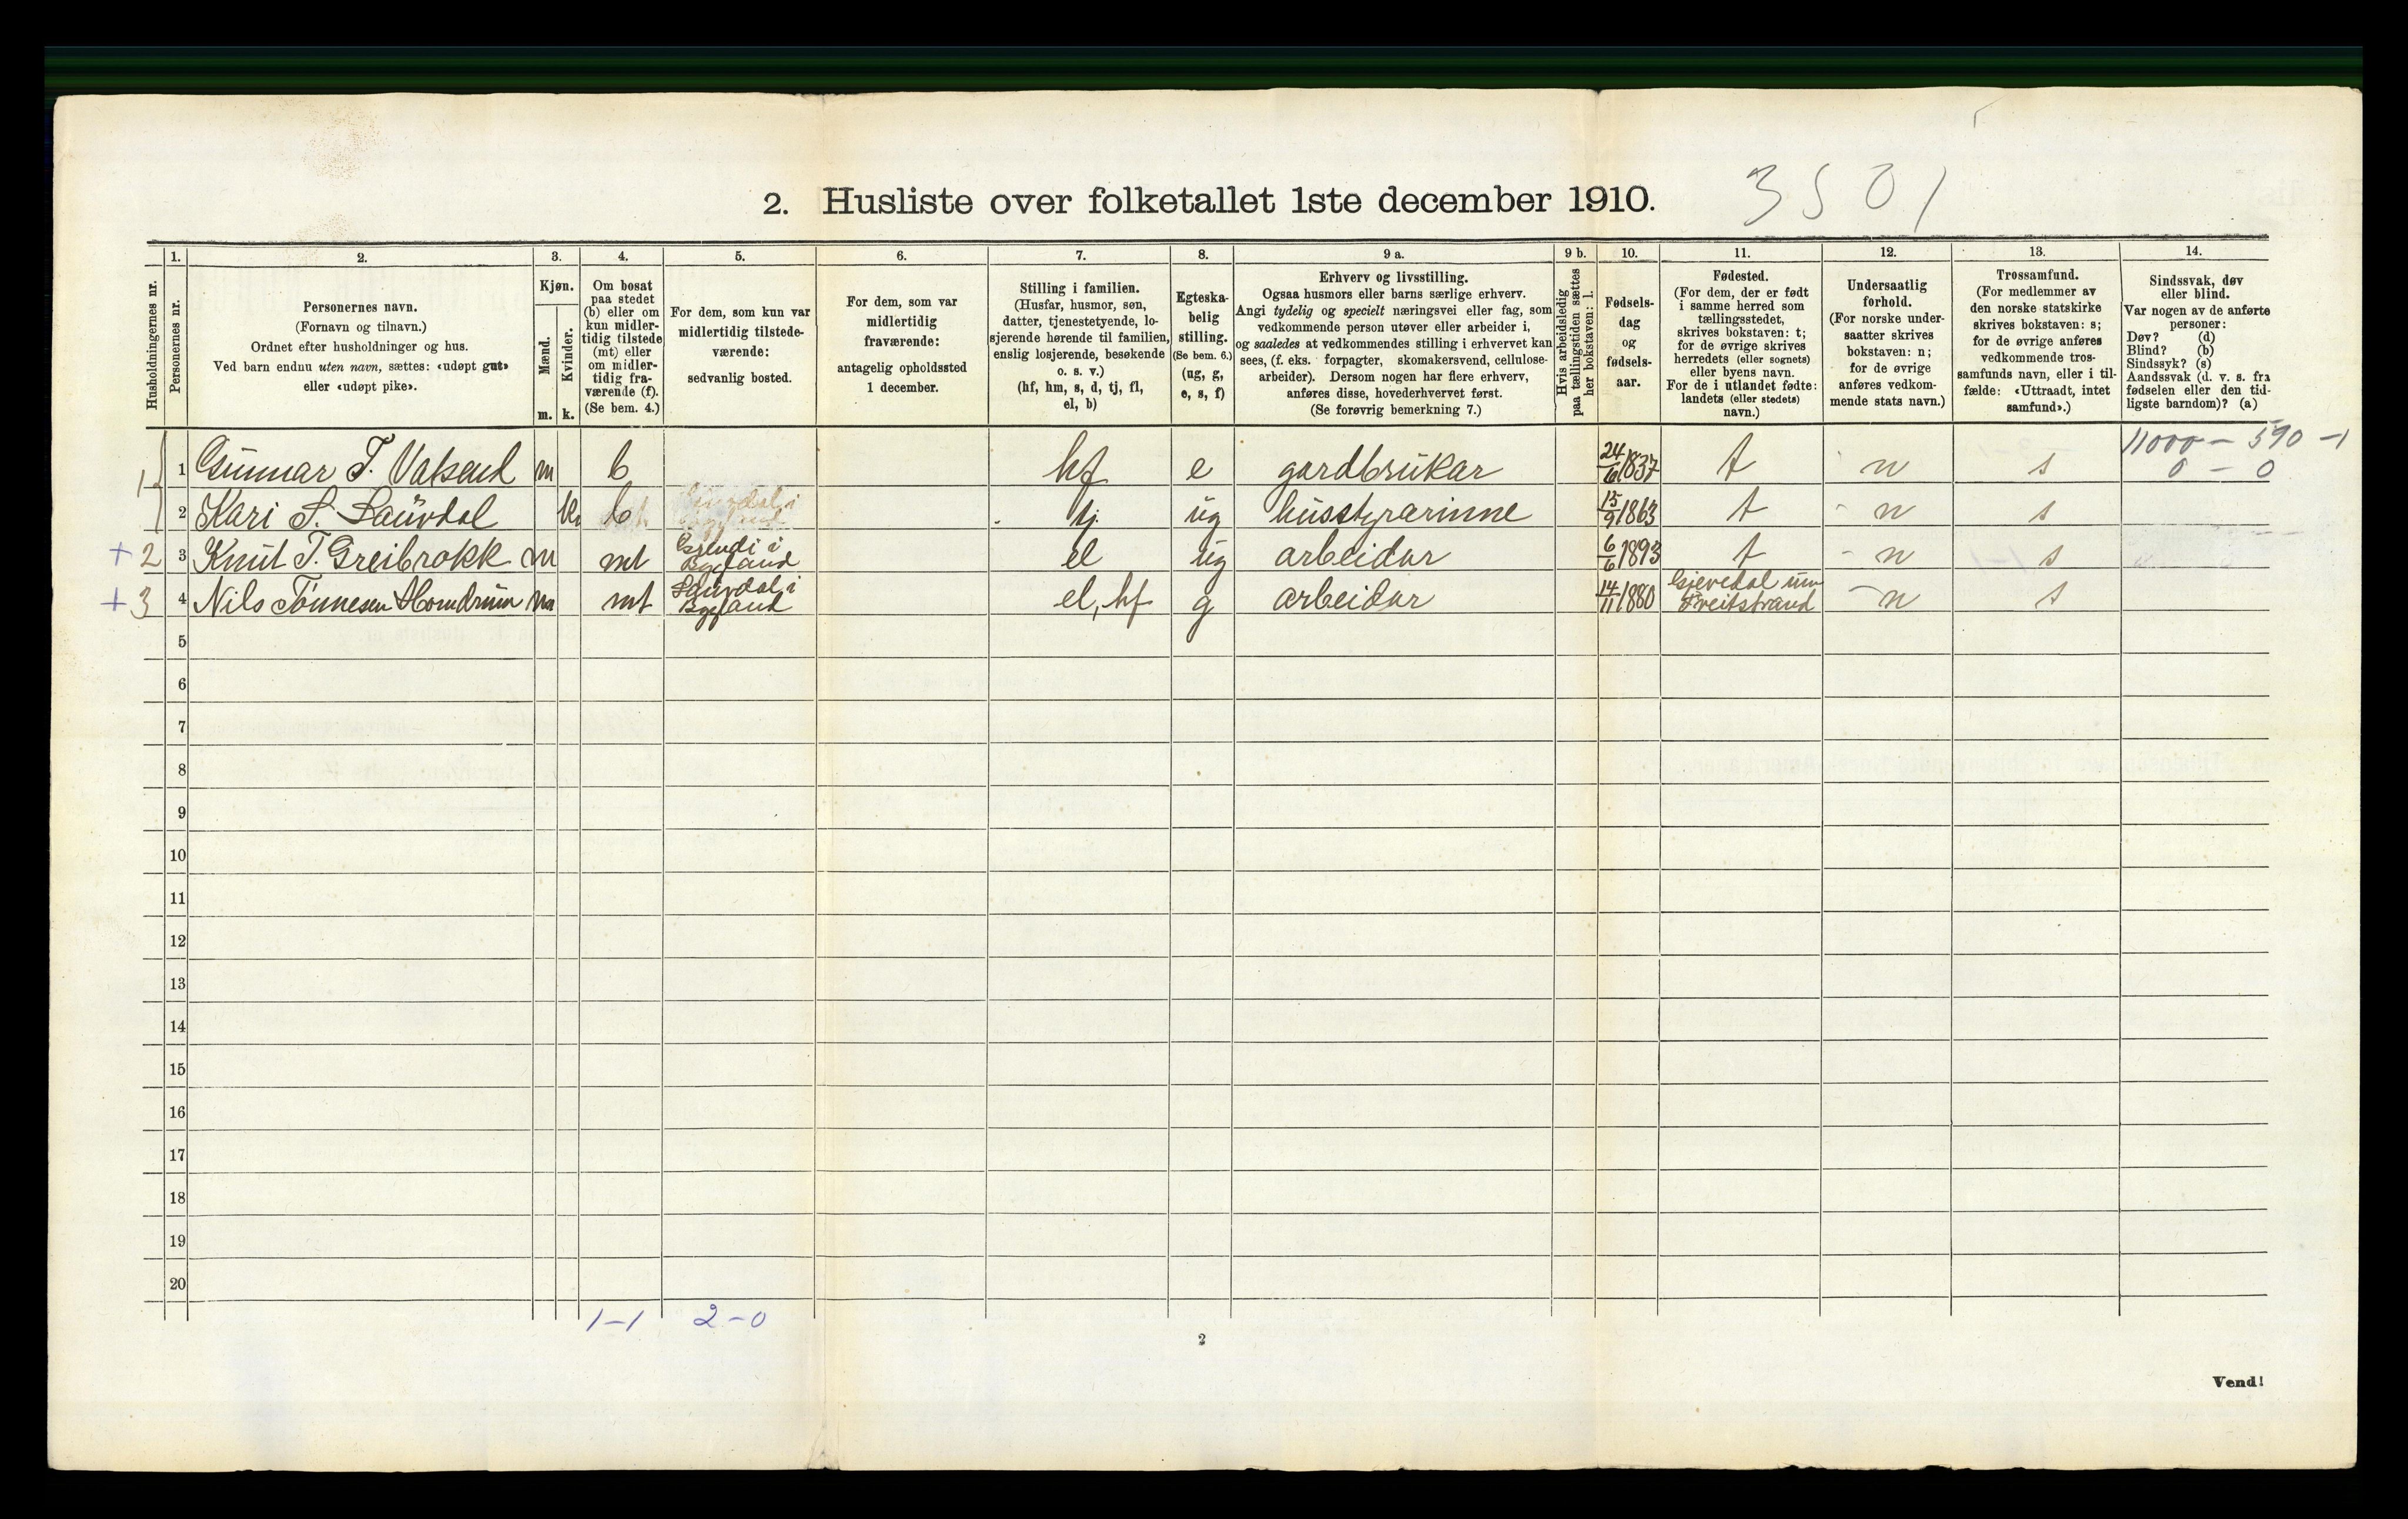 2. Husliste over folketallet 1ste december 1910.
3501
1. 2. 3. 4. 5. 6. 7. 8. 9 a. 9 b. 10. 11. 12. 13. 14.
Husholdningernes nr.
Personernes nr.
Personernes navn.
(Fornavn og tilnavn.)
Ordnet efter husholdninger og hus.
Ved barn endnu uten navn, sættes: «udøpt gut»
eller «udøpt pike».
Kjøn.
Mænd.
Kvinder.
m. k.
Om bosat
paa stedet
(b) eller om
kun midler-
tidig tilstede
(mt) eller
om midler-
tidig fra-
værende (f).
(Se bem. 4.)
For dem, som kun var
midlertidig tilstede-
værende:
sedvanlig bosted.
For dem, som var
midlertidig
fraværende:
antagelig opholdssted
1 december.
Stilling i familien.
(Husfar, husmor, søn,
datter, tjenestetyende, lo-
sjerende hørende til familien,
enslig losjerende, besøkende
o. s. v.)
(hf, hm, s, d, tj, fl,
el, b)
Egteska-
belig
stilling.
(Se bem. 6.)
(ug, g,
e, s, f)
Erhverv og livsstilling.
Ogsaa husmors eller barns særlige erhverv.
Angi tydelig og specielt næringsvei eller fag, som
vedkommende person utøver eller arbeider i,
og saaledes at vedkommendes stilling i erhvervet kan
sees, (f. eks. forpagter, skomakersvend, cellulose-
arbeider). Dersom nogen har flere erhverv,
anføres disse, hovederhvervet først.
(Se forøvrig bemerkning 7.)
Hvis arbeidsledig
paa tællingstiden sættes
her bokstaven: l.
Fødsels-
dag
og
fødsels-
aar.
Fødested.
(For dem, der er født
i samme herred som
tællingsstedet,
skrives bokstaven: t;
for de øvrige skrives
herredets (eller sognets)
eller byens navn.
For de i utlandet fødte:
landets (eller stedets)
navn.)
Undersaatlig
forhold.
(For norske under-
saatter skrives
bokstaven: n;
for de øvrige
anføres vedkom-
mende stats navn.)
Trossamfund.
(For medlemmer av
den norske statskirke
skrives bokstaven: s;
for de øvrige anføres
vedkommende tros-
samfunds navn, eller i til-
fælde: «Uttraadt, intet
samfund».)
Sindssvak, døv
eller blind.
Var nogen av de anførte
personer:
Døv? (d)
Blind? (b)
Sindssyk? (s)
Aandssvak (d. v. s. fra
fødselen eller den tid-
ligste barndom)? (a)
11000 - 590 - 1
0 - 0
1 1 Gunnar T. Vatsend m b hf e gardbrukar 24/6 1837 t n s
2 Kari S. Laurdal k b tj ug husstyrarinne 15/9 1863 t n s
+ 2 3 Knut T. Greibrokk m mt Byland el ug arbeidar 6/6 1893 t n s
+ 3 4 Nils Tønnesen Homdrum m mt Laurdal i Bygland el, hf g arbeidar 14/11 1880 n s
5
6
7
8
9
10
11
12
13
14
15
16
17
18
19
20
1-1 2-0
2
Vend!